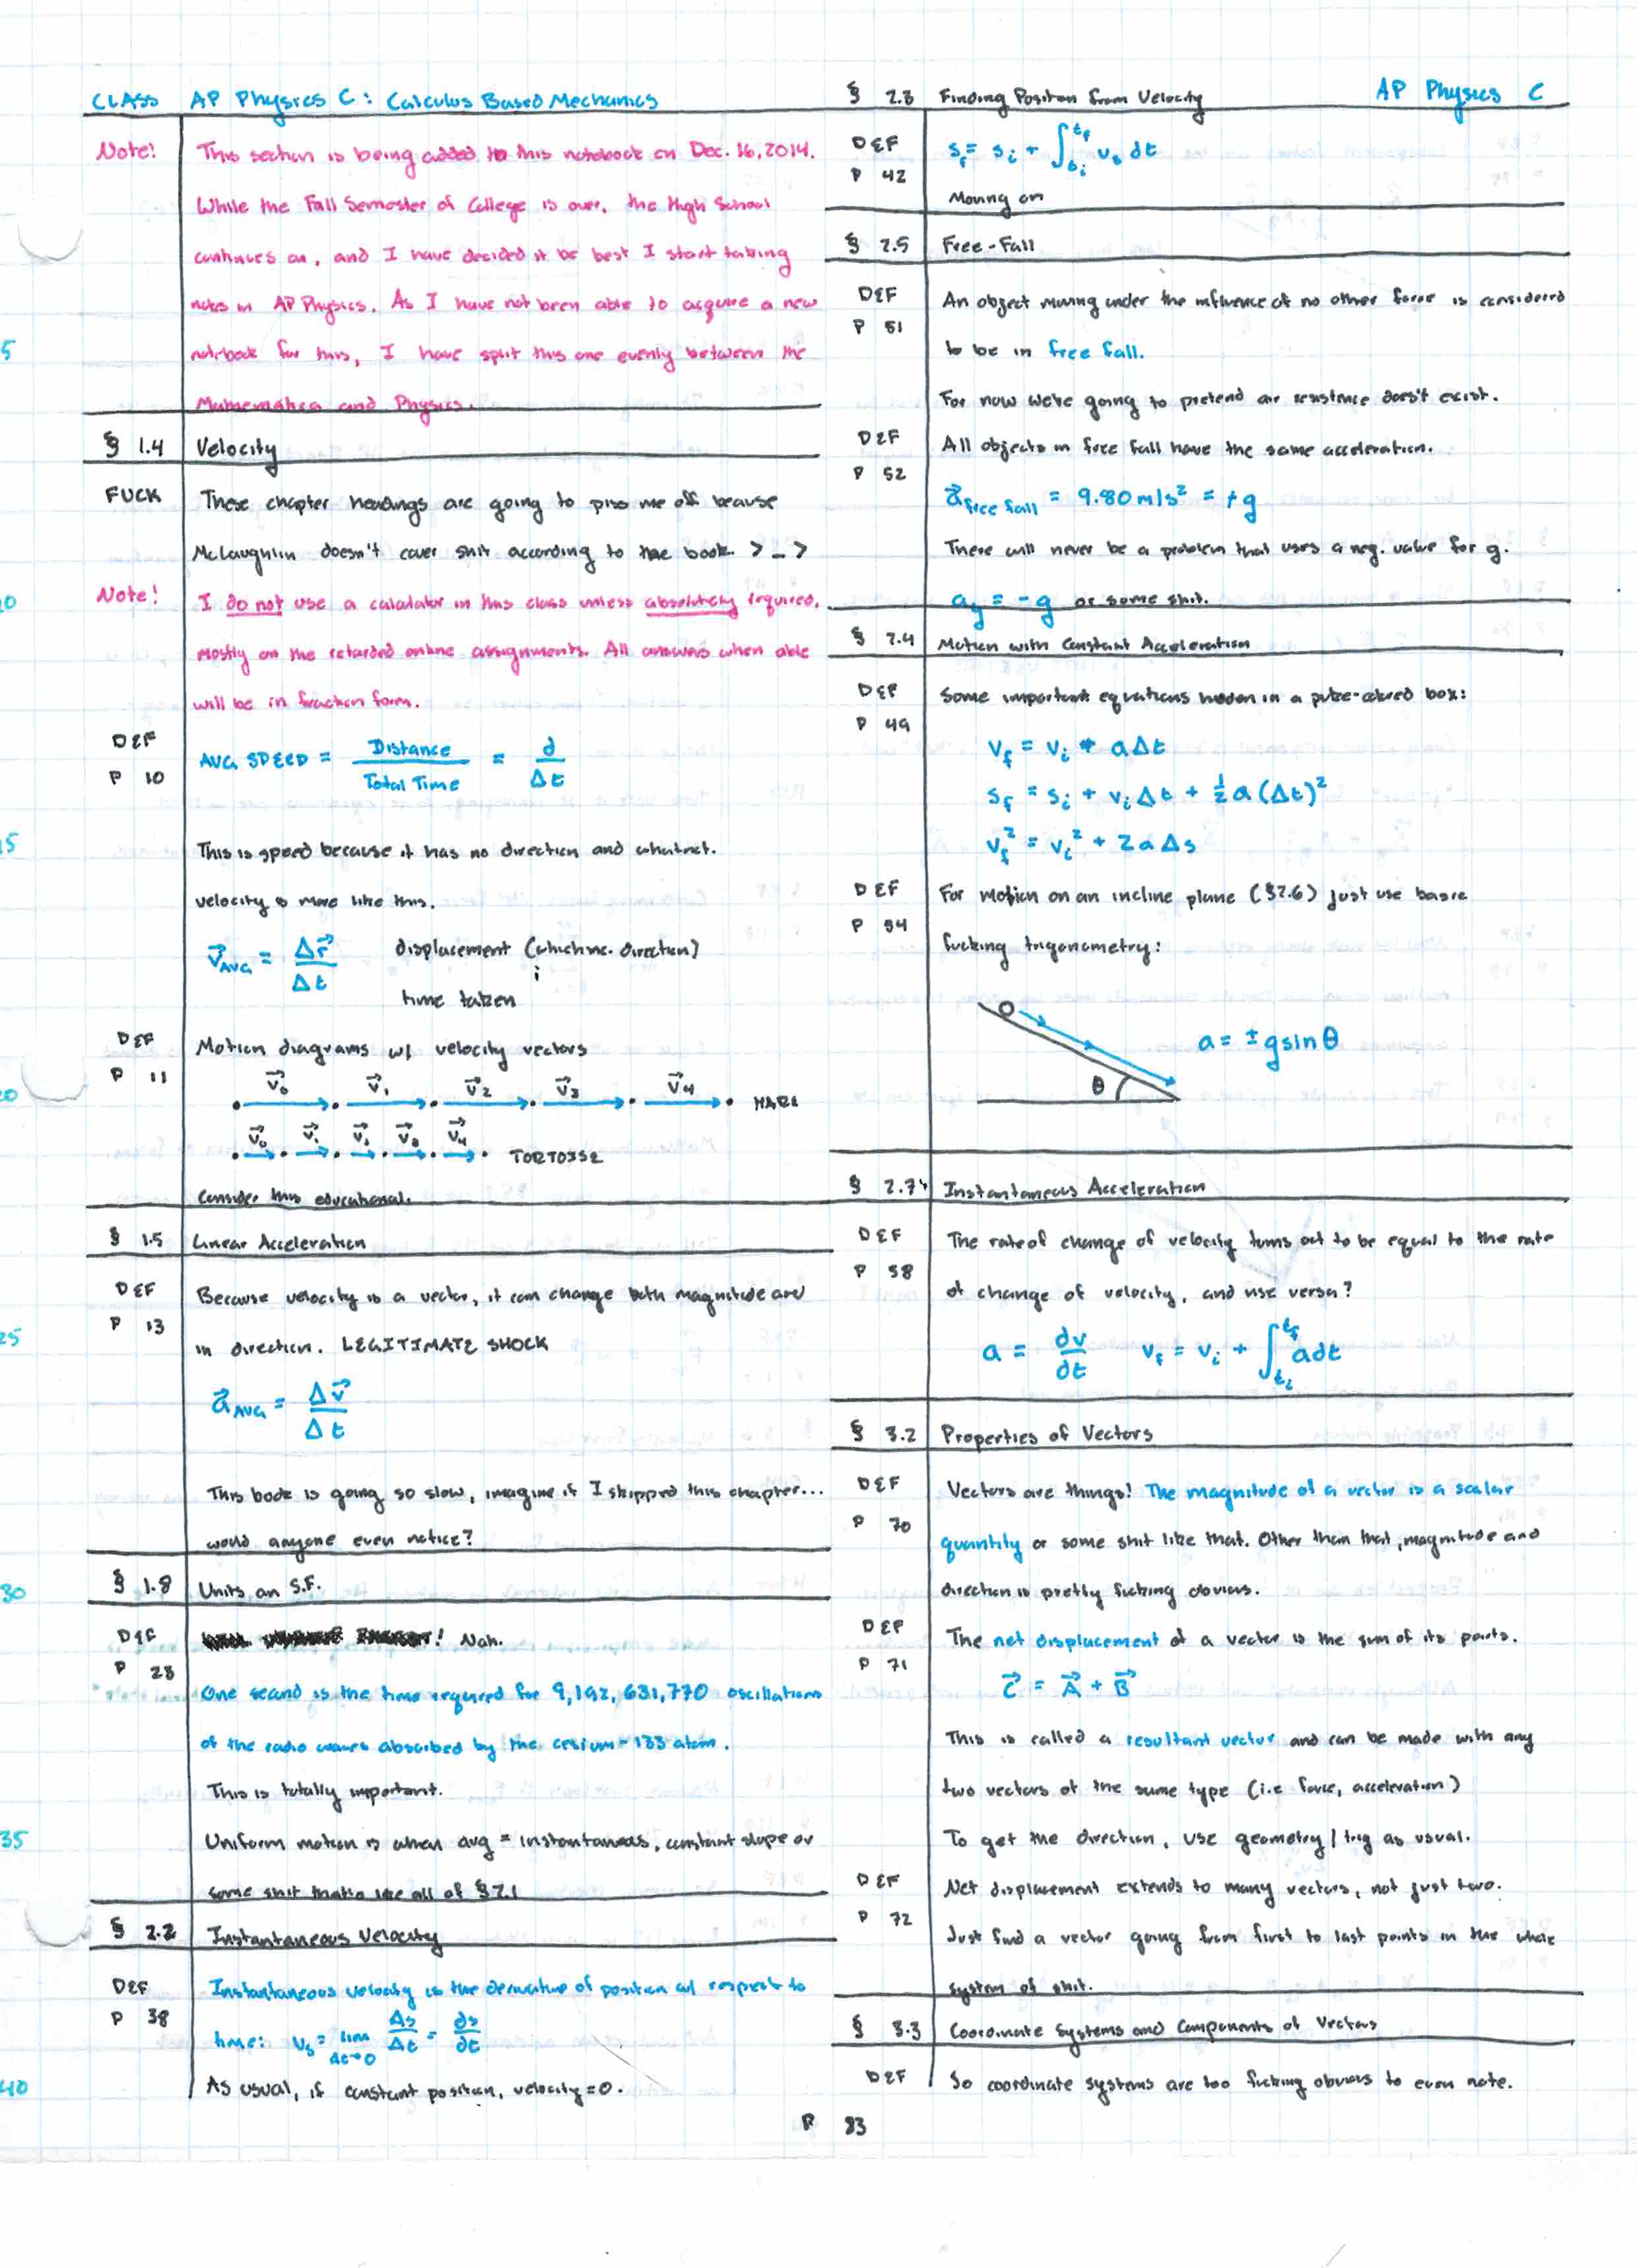 CLASS AP Physics C: Calculus Based Mechanics
Note! This section is being added to this notebook on Dec. 16, 2014.
While the Fall Semester of College is over, the High School
continues on, and I have decided it be best I start taking
notes in AP Physics. As I have not been able to acquire a new
5 notebook for this, I have split this one evenly between the
Mathematica and Physics.
§ 1.4 Velocity
FUCK These chapter headings are going to piss me off because
McLaughlin doesn't cover shit according to the book. >_>
10 Note! I do not use a calculator in this class unless absolutely required,
mostly on the retarded online assignments. All answers when able
will be in fraction form.
DEF P 10 AVG SPEED = Distance / Total Time = d / Δt
15 This is speed because it has no direction and whatnot.
velocity is more like this.
v⃗AVG = Δr⃗ / Δt displacement (which inc. direction)
time taken
DEF Motion diagrams w/ velocity vectors
P 11 v⃗0 v⃗1 v⃗2 v⃗3 v⃗4
20 HARE
v⃗0 v⃗1 v⃗2 v⃗3 v⃗4
TORTOISE
Consider this educational.
§ 1.5 Linear Acceleration
DEF Because velocity is a vector, it can change both magnitude and
P 13
25 in direction. LEGITIMATE SHOCK
a⃗AVG = Δv⃗ / Δt
This book is going so slow, imagine if I skipped this chapter...
would anyone even notice?
30 § 1.8 Units an S.F.
DEF ! Nah.
P 28 One second is the time required for 9,192,631,770 oscillations
of the radio waves absorbed by the cesium-133 atom.
This is totally important.
35 Uniform motion is when avg = instantaneous, constant slope or
some shit that's like all of §2.1
§ 2.2 Instantaneous Velocity
DEF Instantaneous velocity is the derivative of position w/ respect to
P 38 time: vs = lim Δt→0 Δs/Δt = ds/dt
40 As usual, if constant position, velocity=0.
§ 2.3 Finding Position from Velocity AP Physics C
DEF P 42 sf = si + ∫ti tf vs dt
Moving on
§ 2.5 Free-Fall
DEF An object moving under the influence of no other force is considered
P 51
to be in free fall.
For now we're going to pretend air resistence doesn't exist.
DEF All objects in free fall have the same acceleration.
P 52
a⃗free fall = 9.80 m/s² = +g
There will never be a problem that uses a neg. value for g.
ay = -g or some shit.
§ 2.4 Motion with Constant Acceleration
DEF Some important equations hidden in a puke-colored box:
P 49
vf = vi + aΔt
sf = si + viΔt + ½a(Δt)²
vf² = vi² + 2aΔs
DEF For motion on an incline plane (§2.6) just use basic
P 54 fucking trigonometry:
a = ±g sin θ
θ
§ 2.7 Instantaneous Acceleration
DEF The rate of change of velocity turns out to be equal to the rate
P 58
of change of velocity, and vise versa?
a = dv/dt vf = vi + ∫ti tf a dt
§ 3.2 Properties of Vectors
DEF Vectors are things! The magnitude of a vector is a scalar
P 70
quantity or some shit like that. Other than that, magnitude and
direction is pretty fucking obvious.
DEF The net displacement of a vector is the sum of its parts.
P 71
C⃗ = A⃗ + B⃗
This is called a resultant vector and can be made with any
two vectors of the same type (i.e force, acceleration)
To get the direction, use geometry/trig as usual.
DEF Net displacement extends to many vectors, not just two.
P 72
Just find a vector going from first to last points in the whole
system of shit.
§ 3.3 Coordinate Systems and Components of Vectors
DEF So coordinate systems are too fucking obvious to even note.
P 83